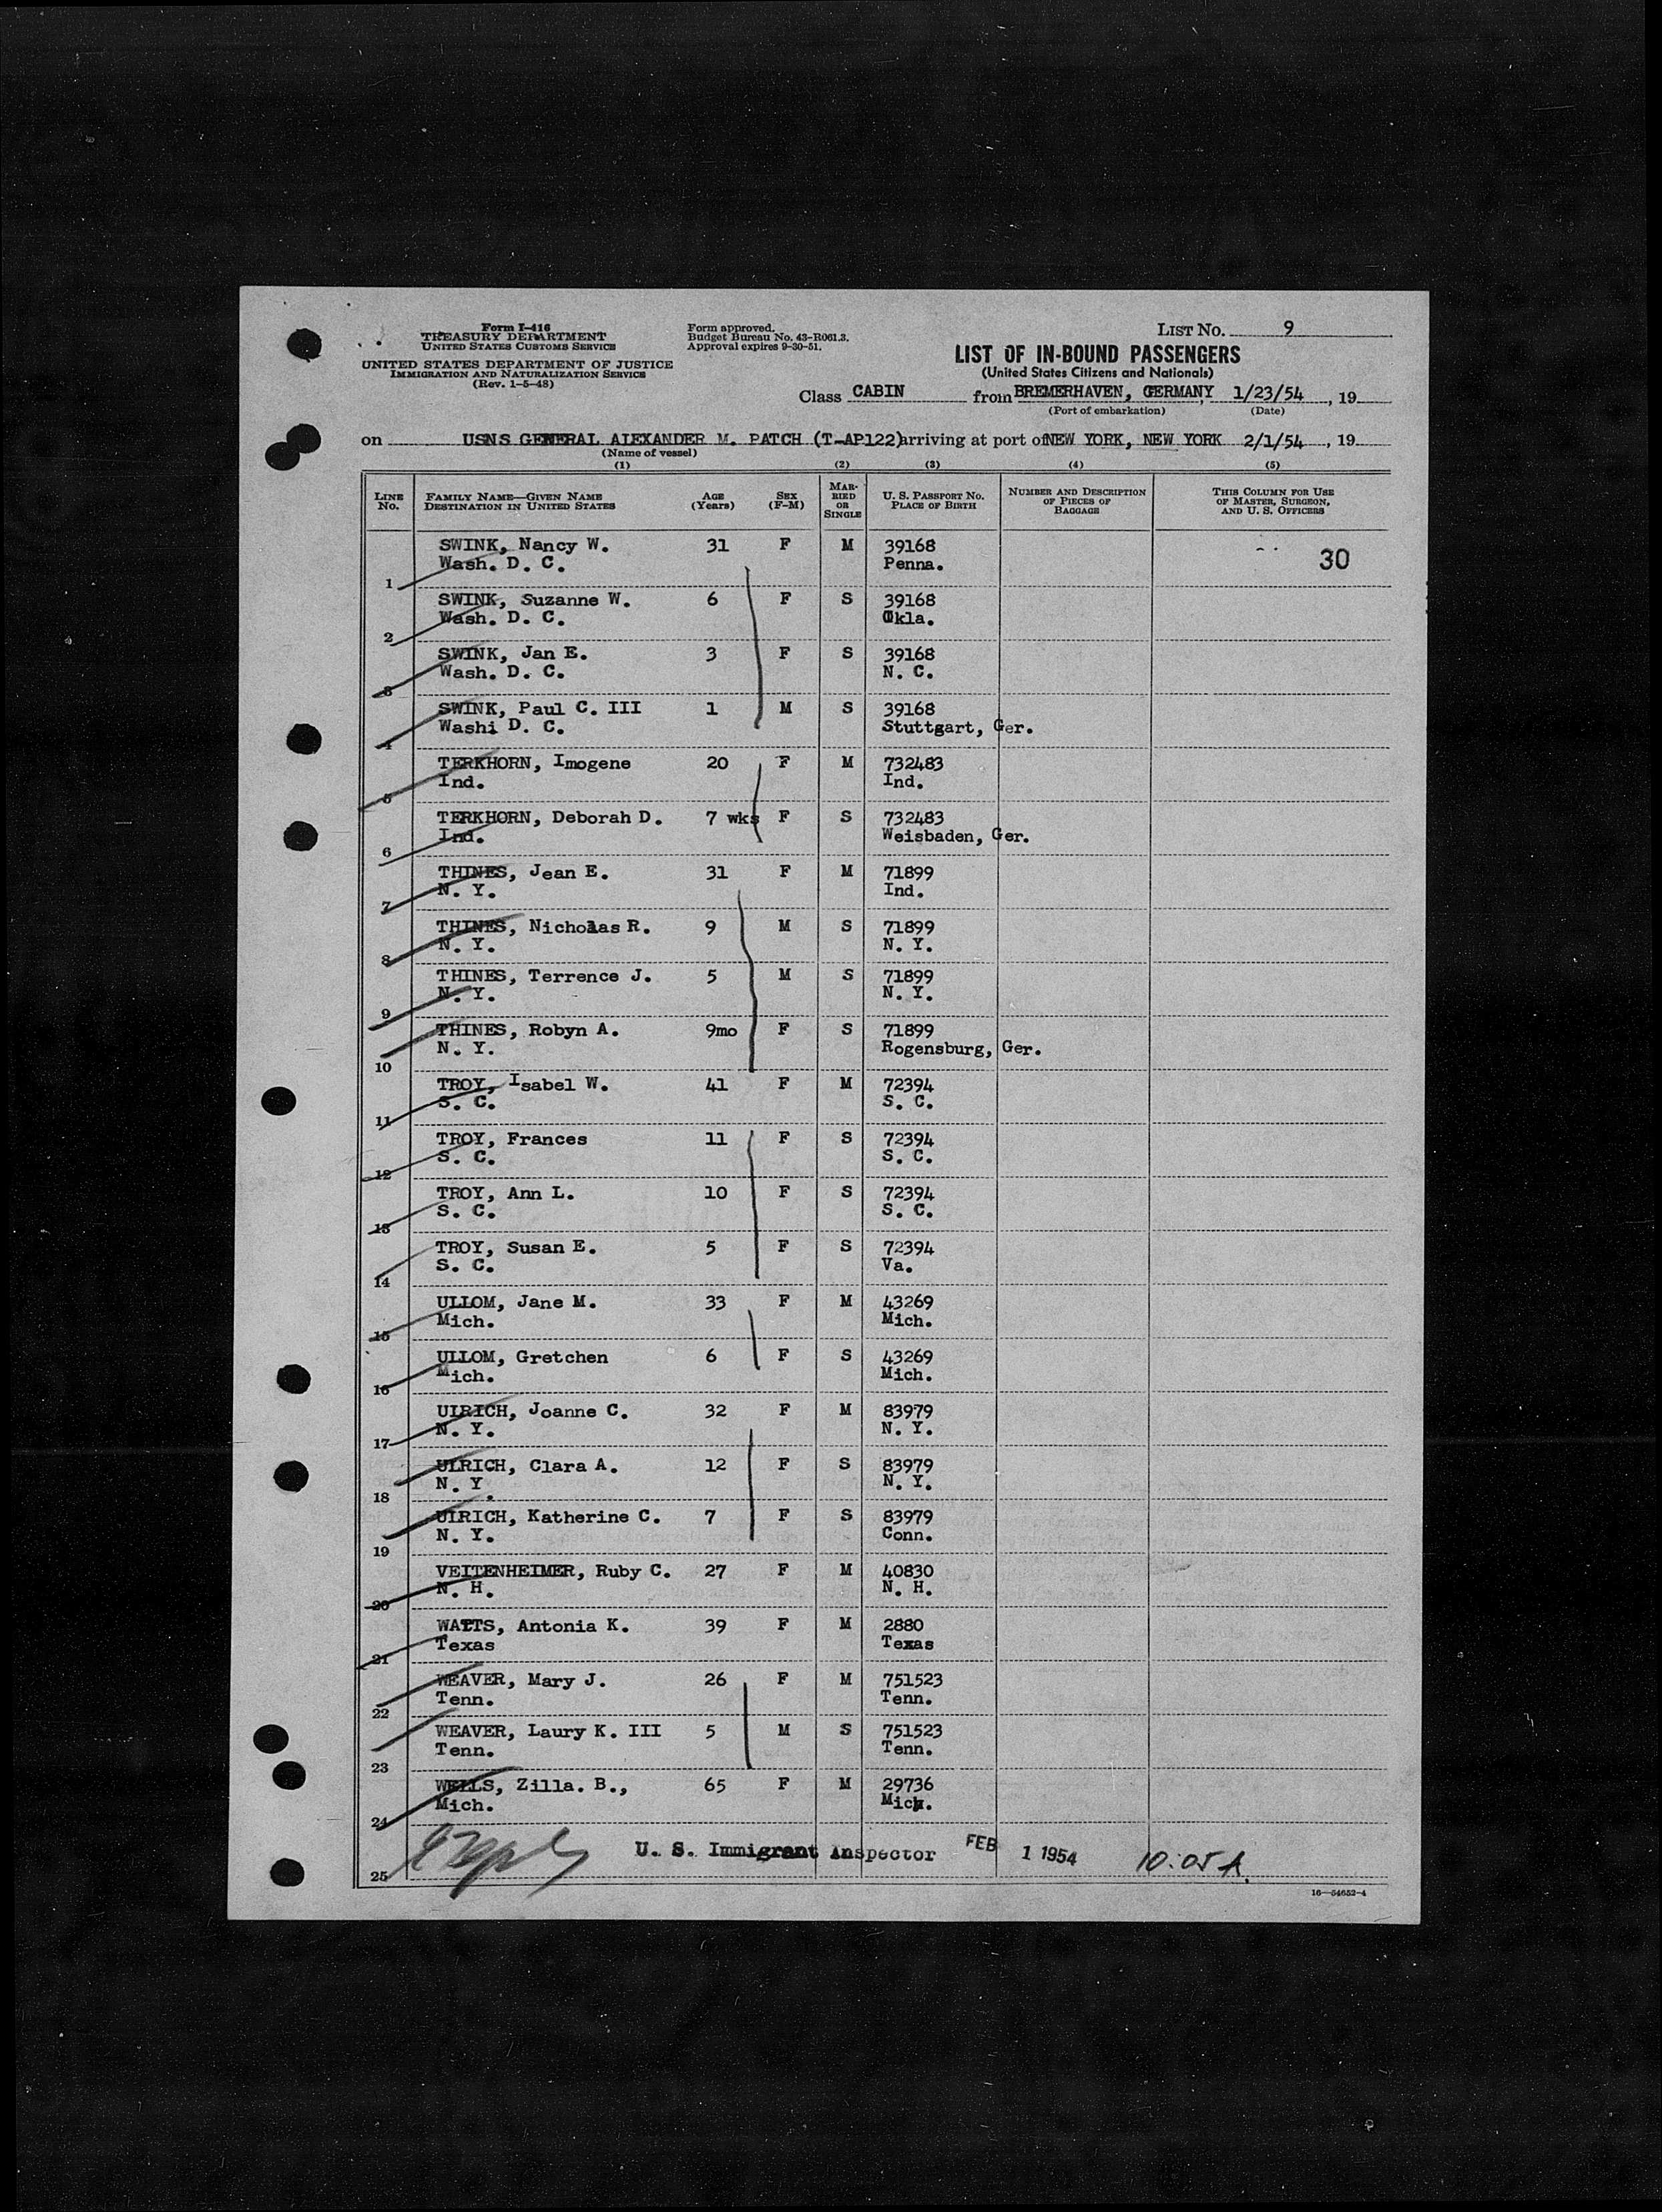 Form I-416
TREASURY DEPARTMENT
UNITED STATES CUSTOMS SERVICE
UNITED STATES DEPARTMENT OF JUSTICE
IMMIGRATION AND NATURALIZATION SERVICE
(Rev. 1-5-48)
Form approved.
Budget Bureau No. 43-R061.3.
Approval expires 9-30-51.
LIST NO. 9
LIST OF IN-BOUND PASSENGERS
(United States Citizens and Nationals)
Class CABIN from BREMERHAVEN, GERMANY, 1/23/54, 19
(Port of embarkation) (Date)
on USNS GENERAL ALEXANDER M. PATCH (T-AP122) arriving at port of NEW YORK, NEW YORK 2/1/54, 19
(Name of vessel)
(1) (2) (3) (4) (5)
LINE NO. FAMILY NAME—GIVEN NAME DESTINATION IN UNITED STATES AGE (Years) SEX (F-M) MARRIED OR SINGLE U. S. PASSPORT NO. PLACE OF BIRTH NUMBER AND DESCRIPTION OF PIECES OF BAGGAGE THIS COLUMN FOR USE OF MASTER, SURGEON, AND U. S. OFFICERS
SWINK, Nancy W. 31 F M 39168 30
1 Wash. D. C. Penna.
SWINK, Suzanne W. 6 F S 39168
2 Wash. D. C. Okla.
SWINK, Jan E. 3 F S 39168
3 Wash. D. C. N. C.
SWINK, Paul C. III 1 M S 39168
4 Washi D. C. Stuttgart, Ger.
TERKHORN, Imogene 20 F M 732483
5 Ind. Ind.
TERKHORN, Deborah D. 7 wks F S 732483
6 Ind. Weisbaden, Ger.
THINES, Jean E. 31 F M 71899
7 N. Y. Ind.
THINES, Nicholas R. 9 M S 71899
8 N. Y. N. Y.
THINES, Terrence J. 5 M S 71899
9 N. Y. N. Y.
THINES, Robyn A. 9mo F S 71899
10 N. Y. Rogensburg, Ger.
TROY, Isabel W. 41 F M 72394
11 S. C. S. C.
TROY, Frances 11 F S 72394
12 S. C. S. C.
TROY, Ann L. 10 F S 72394
13 S. C. S. C.
TROY, Susan E. 5 F S 72394
14 S. C. Va.
ULLOM, Jane M. 33 F M 43269
15 Mich. Mich.
ULLOM, Gretchen 6 F S 43269
16 Mich. Mich.
ULRICH, Joanne C. 32 F M 83979
17 N. Y. N. Y.
ULRICH, Clara A. 12 F S 83979
18 N. Y. N. Y.
ULRICH, Katherine C. 7 F S 83979
19 N. Y. Conn.
VEITENHEIMER, Ruby C. 27 F M 40830
20 N. H. N. H.
WATTS, Antonia K. 39 F M 2880
21 Texas Texas
WEAVER, Mary J. 26 F M 751523
22 Tenn. Tenn.
WEAVER, Laury K. III 5 M S 751523
23 Tenn. Tenn.
WELLS, Zilla. B., 65 F M 29736
24 Mich. Mich.
U. S. Immigrant Inspector FEB 1 1954 10:05 A.
25
16—54652-4